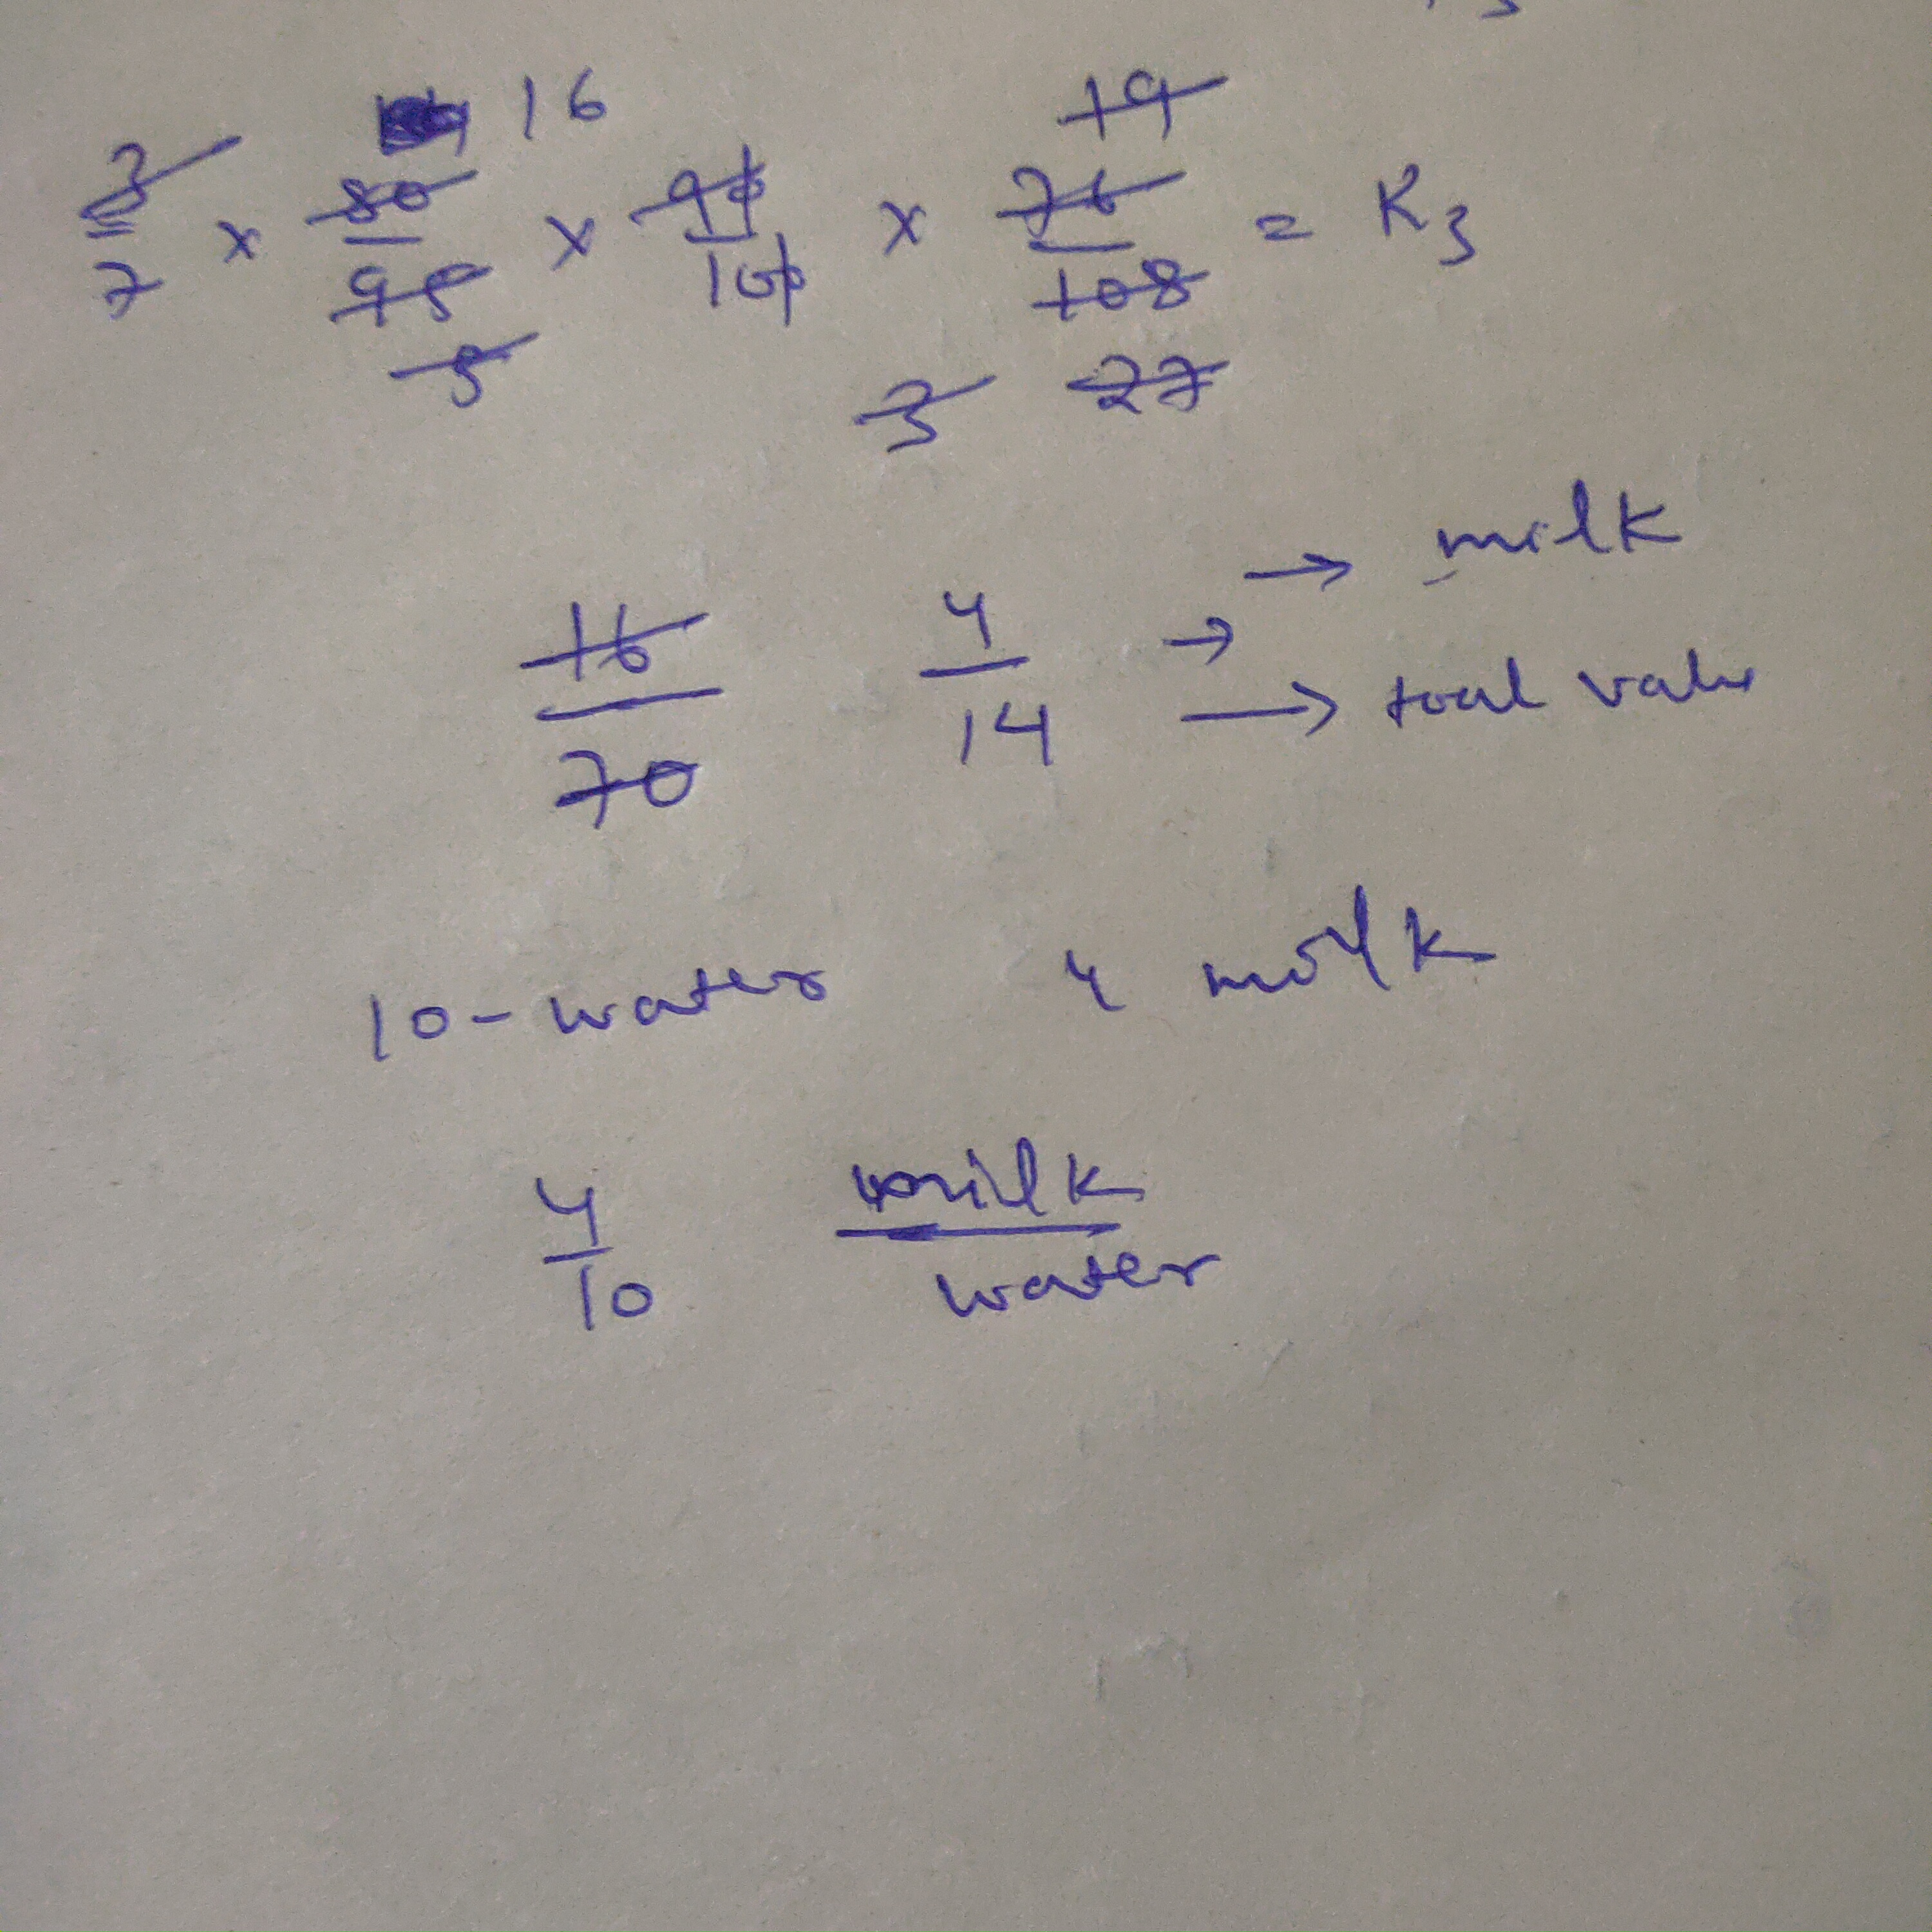 16 19
3/7 × 80/95 × 90/100 × 76/108 = K3
5 3 27
→ milk
16/70 4/14 →
→ toal value
10 - water 4 milk
4/10 milk/water